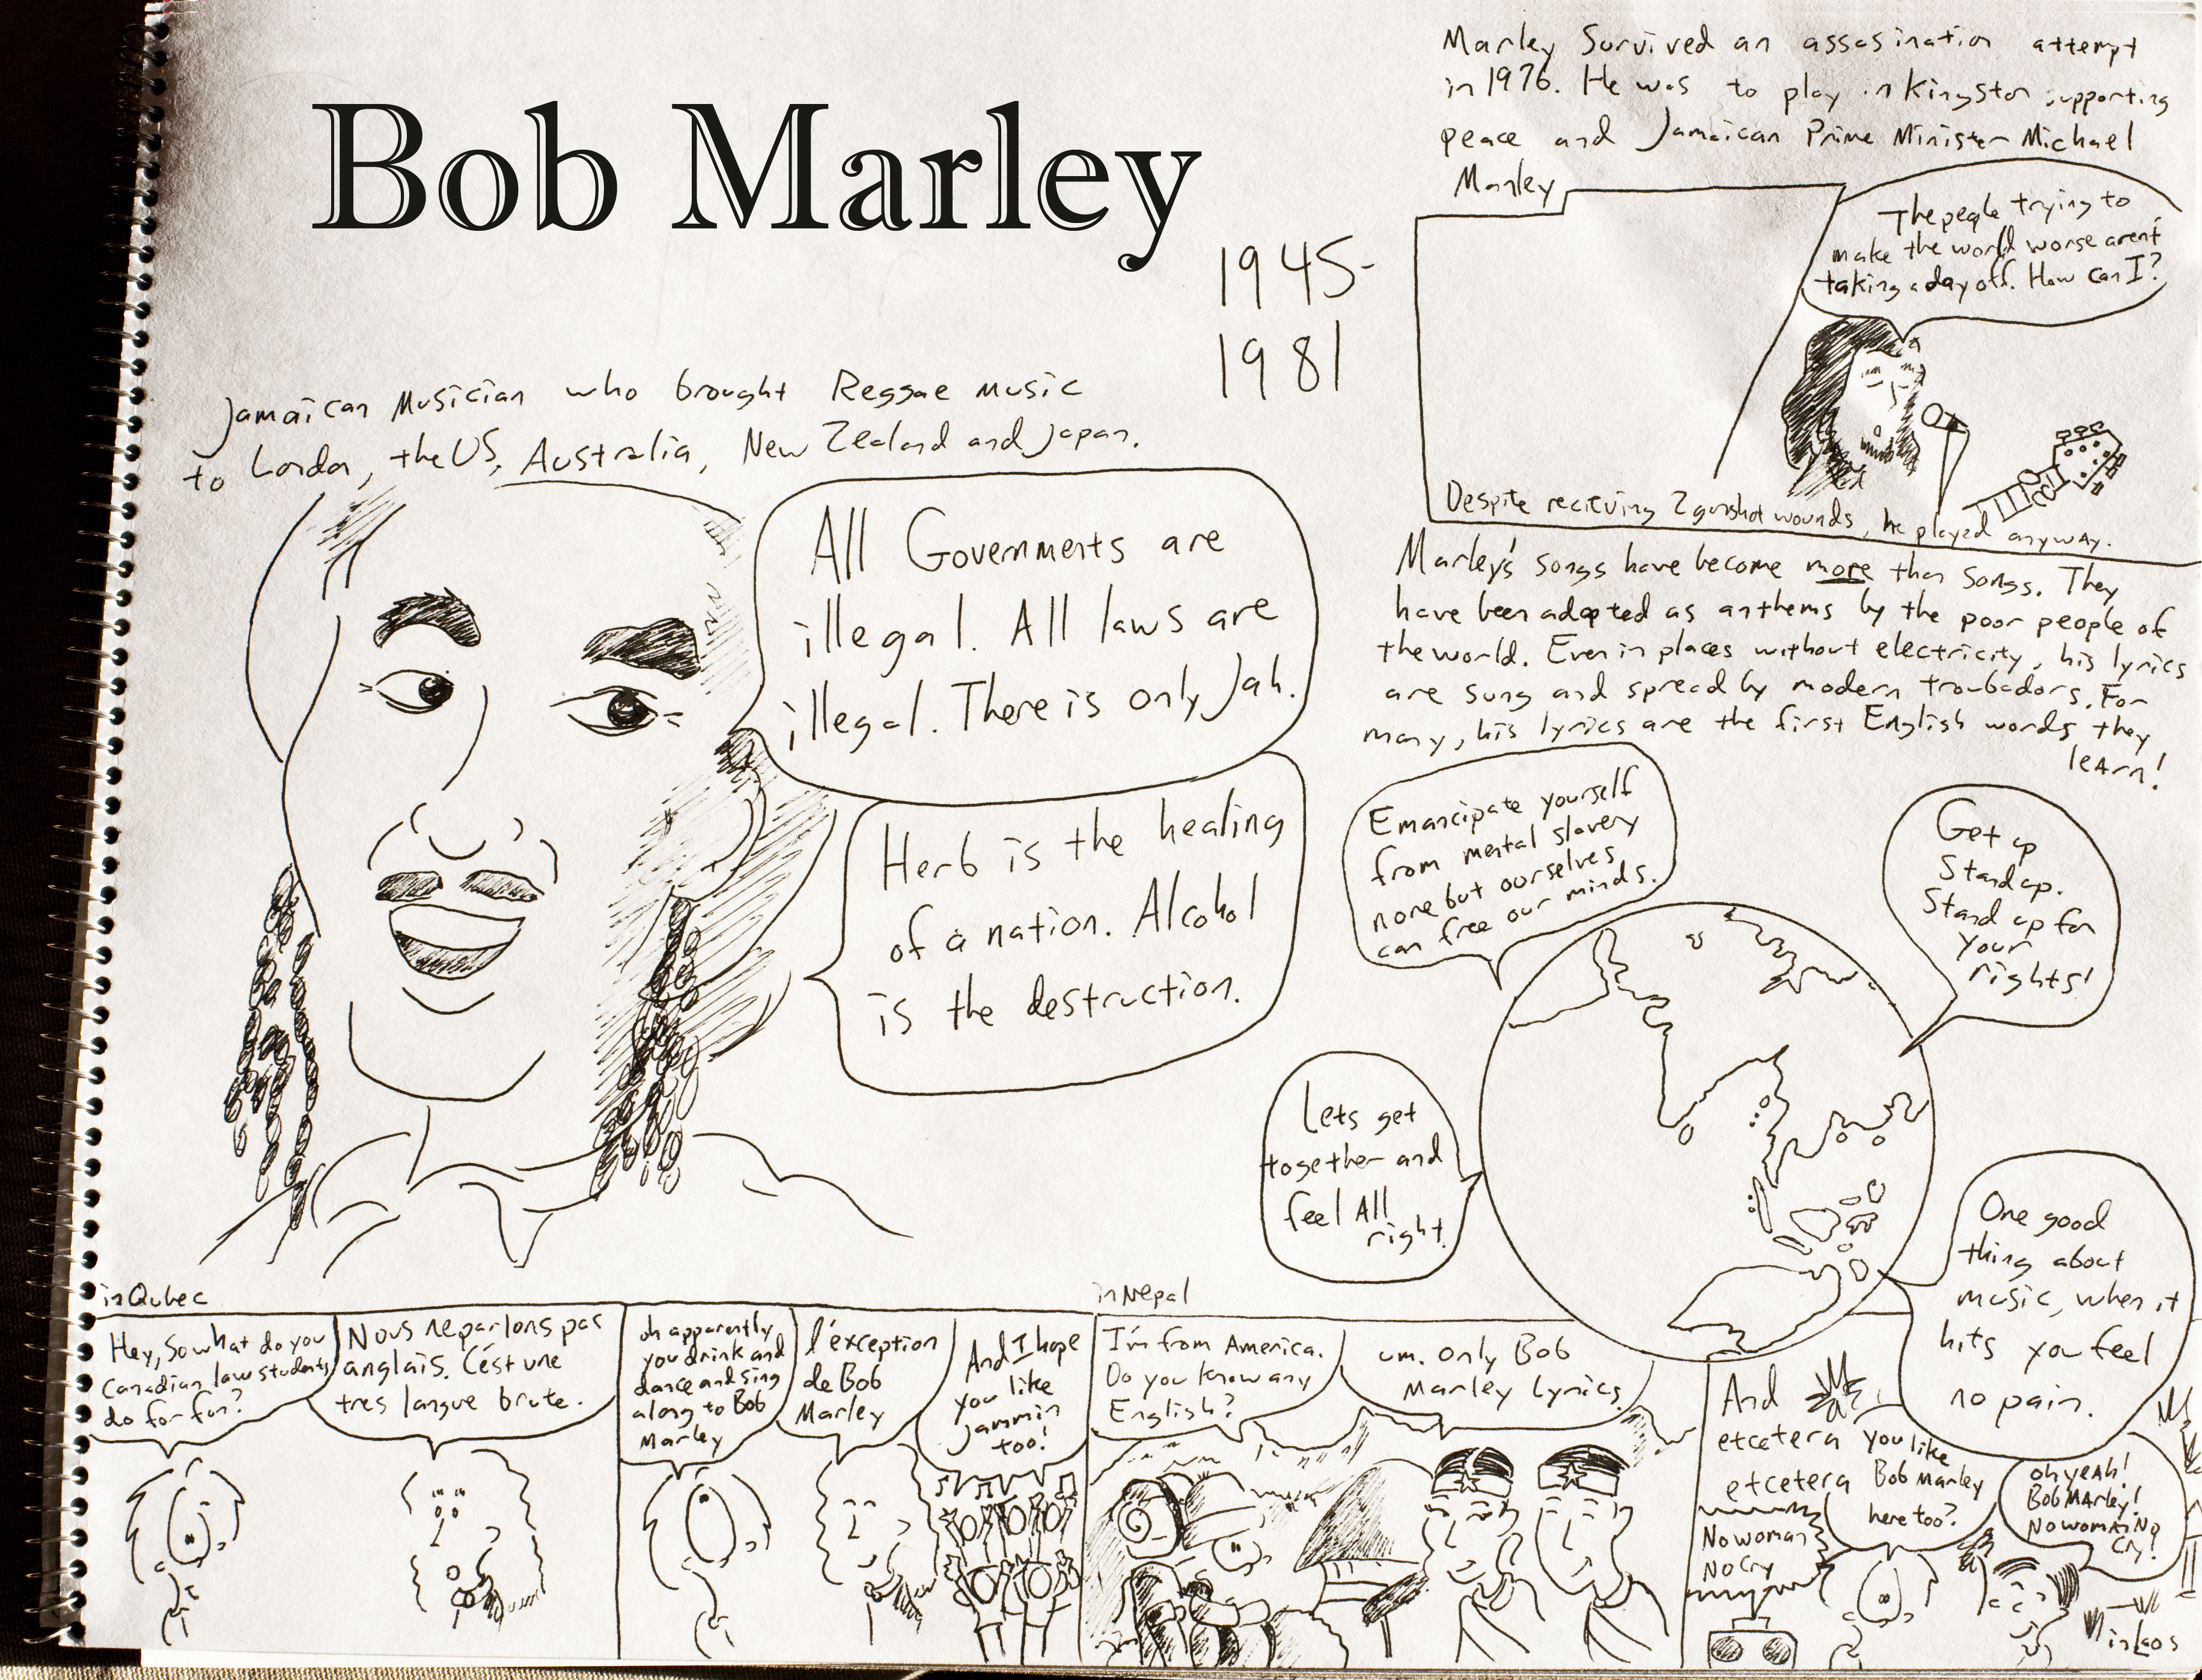 Bob Marley
1945-
1981
Jamaican Musician who brought Reggae music
to London, the US, Australia, New Zealand and Japan.
All Governments are
illegal. All laws are
illegal. There is only Jah.
Herb is the healing
of a nation. Alcohol
is the destruction.
Marley Survived an assasination attempt
in 1976. He was to play in Kingston supporting
peace and Jamaican Prime Minister Michael
Manley
The people trying to
make the world worse aren't
taking a day off. How can I?
Despite recieving 2 gunshot wounds, he played anyway.
Marley's songs have become more than songs. They
have been adopted as anthems by the poor people of
the world. Even in places without electricity, his lyrics
are sung and spread by modern troubadors. For
many, his lyrics are the first English words they
learn!
Emancipate yourself
from mental slavery
none but ourselves
can free our minds.
Get up
Stand up.
Stand up for
your
rights!
Lets get
together and
feel All
right.
One good
thing about
music, when it
hits you feel
no pain.
in Qubec
Hey, so what do you
Canadian law students
do for fun?
Nous ne parlons pas
anglais. C'est une
tres langue brute.
oh apparently
you drink and
dance and sing
along to Bob
Marley
l'exception
de Bob
Marley
And I hope
you like
jammin
too!
in Nepal
I'm from America.
Do you know any
English?
um. Only Bob
Marley Lyrics.
And
etcetera
etcetera
you like
Bob Marley
here too?
oh yeah!
Bob MArley!
No womaN No
Cry!
No woman
No Cry
in Laos